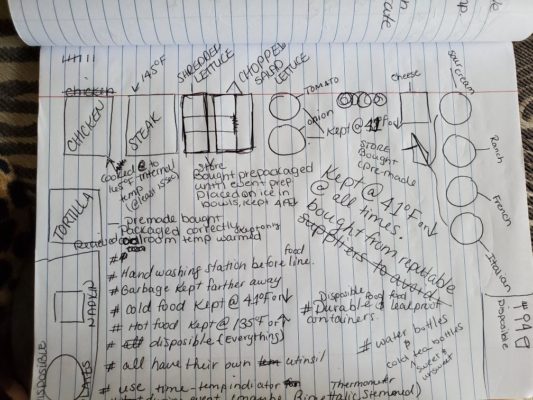 SHREDDED LETTUCE
CHOPPED SALAD LETTUCE
145°F
CHICKEN
STEAK
TOMATO
onion
Kept @ 41°F or ↓
cheese
sour cream
Ranch
French
Italian
STORE Bought
premade
cooked @ to
165°F internal
temp
(@least 15sec)
Store
Bought prepackaged
until event prep
Placed on ice in
bowls, kept 41°F↓
Kept @ 41°F or ↓
@ all times.
bought from reputable
suppliers to avoid
TORTILLA
Premade bought
Packaged correctly
room temp warmed
NAPKIN
# Hand washing station before food line.
# Garbage kept farther away
# cold food kept @ 41°F or ↓
# Hot food kept @ 135°F or ↑
# disposible (everything)
# all have their own utinsil
# use time-temp indicator
Thermometer
during event (maybe Bimettalic Stemmed)
Disposible food
# Durable & leakproof
containers.
# water bottles
&
cold tea bottles
sweet &
unsweet
DISPOSIBLE
PLATES
Disposible